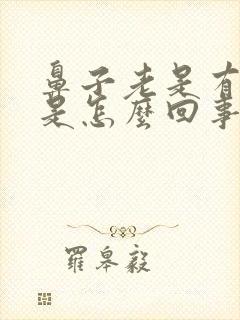 鼻子老是有
是怎麼回事
羅皋毅